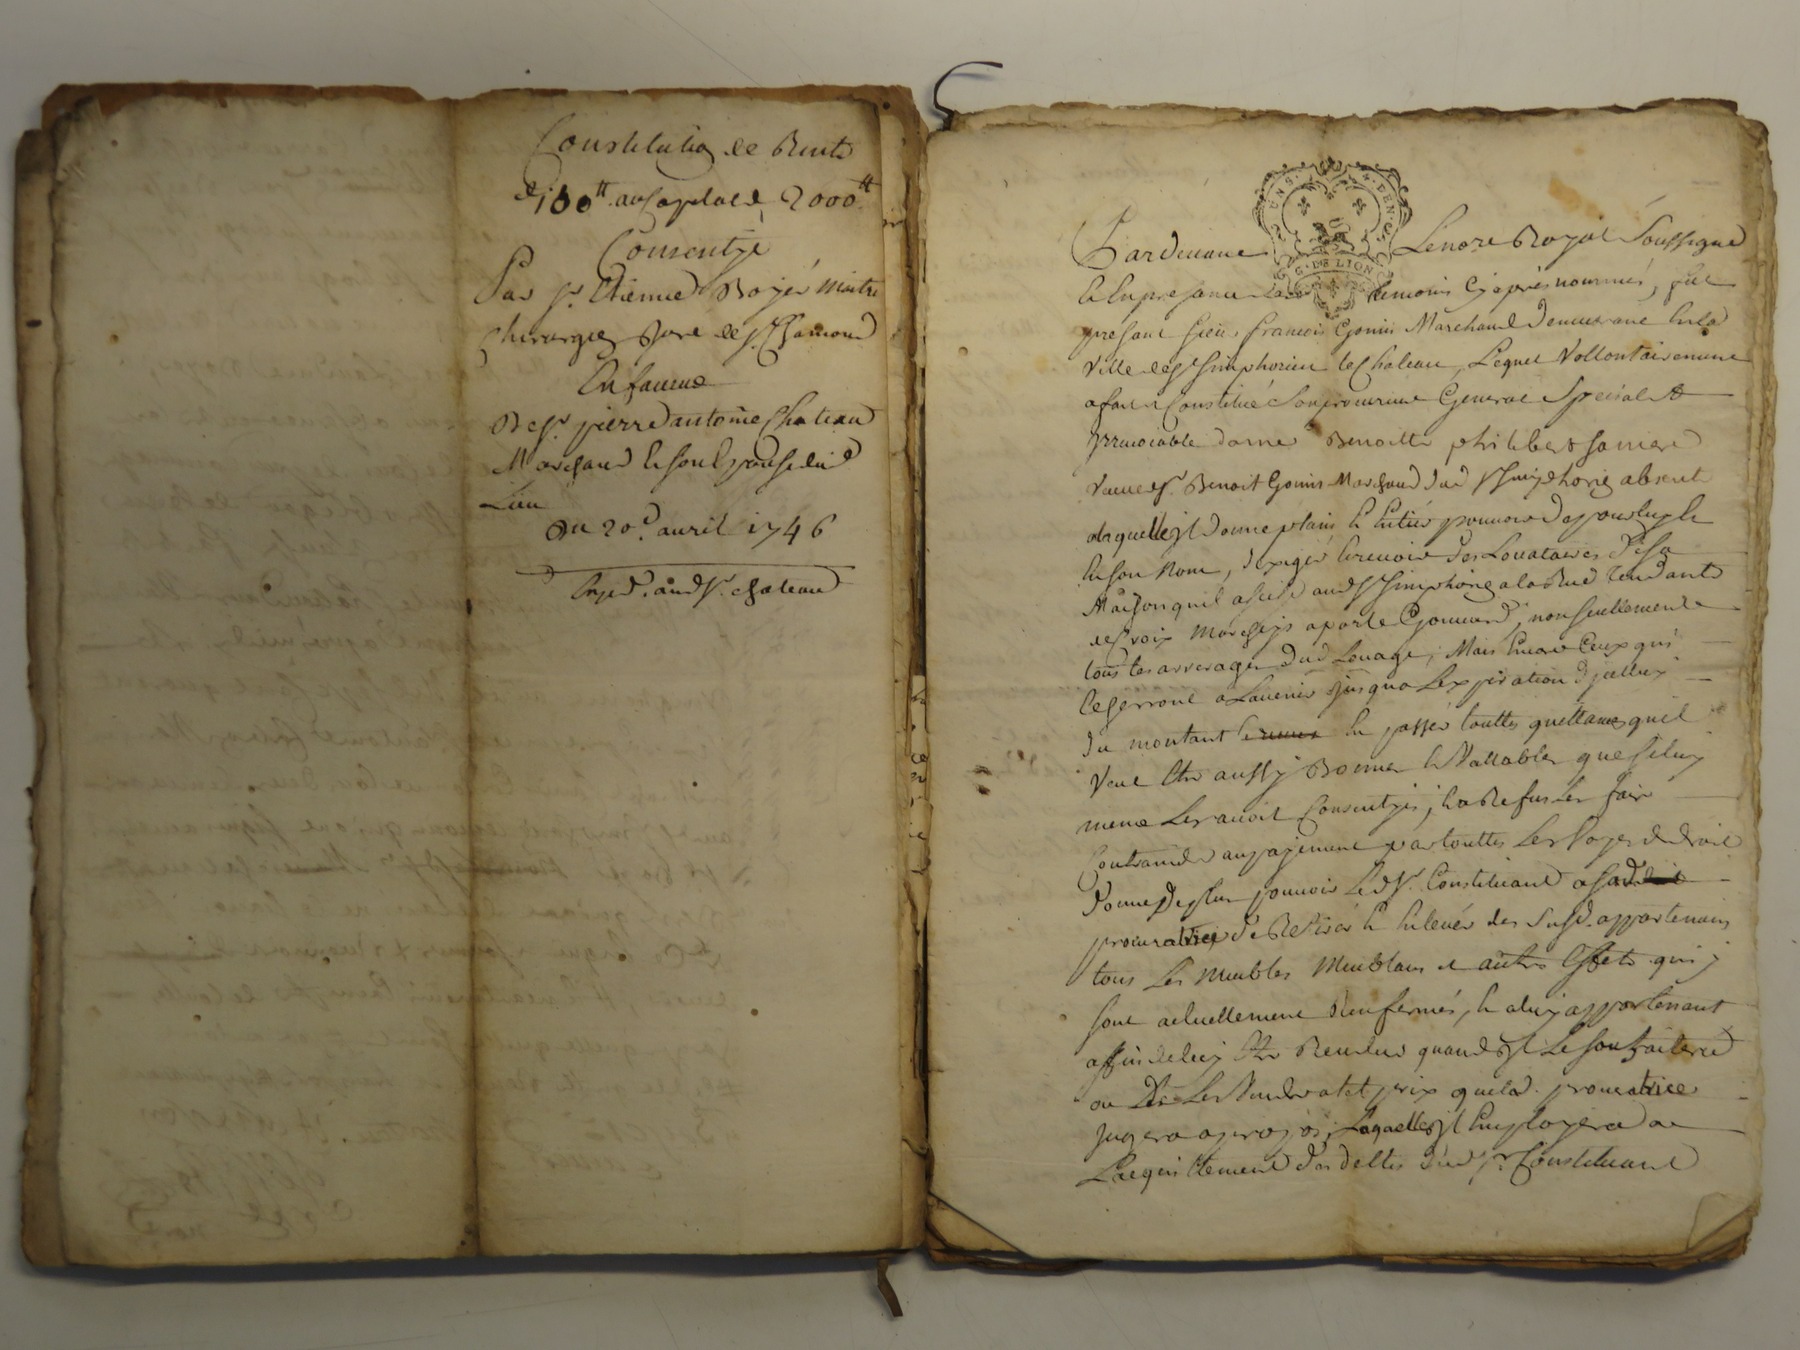 Constitution de Rente
de 100ᵗᵗ au Capital de 2000ᵗᵗ
Consentye
Par Sr. Etienne Boyer Maitre
Chirurgien Juré de St. Chamond
En faueur
De Sr. pierre antoine Chateau
Marchand et son Epouse dud
Lieu
Du 20e. auril 1746
Exped. aud Sr. chateau
GENS. DEN. G. DE LION
Pardeuant Le no.re Royal Soussigné
et En presance des temoins Cyaprès nommés, fut
present sieur françois Gonin Marchand demeurant En la
Ville de St Simphorien le Chateau, Lequel Vollontairement
a fait et Constitué Son procureur General Special et
Irreuocable dame Benoitte philibert sa mere
veuue de Sr. Benoit Gonin Marchand dud St Simphorien absente
a laquelle Il donne plain et Entier pouuoir de pour luy et
En son Nom, d'exiger et receuoir des Locataires de sa
Maison quil a scise aud St Simphorien a la Rue tendante
de Croix a porte Gouuard, non seullement
tous les arrerages dud Louage, Mais Encore Ceux qui
Escherront a Lauenir Jusqua Lexpiration
du montant En passer touttes quittances quil
Veut Etre aussy Bonnes et Vallables que si luy
meme Les auoit Consentyes, et a Refus Les faire
Contraindre au payement par touttes Les Voyes de droit
Donne de plus pouuoir Led Sr. Constituant a sad
procuratrice de Retirer et Enleuer des susd. appartemens
tous Les Meubles Meublans et autres Effets qui y
sont actuellement Renfermés, et a luy appartenant
affin de luy Etre Rendus quand Il Le souhaitera
ou de Les Vendre a tel prix que lad. procuratrice
Jugera apropos, Laquelle Il Employera a
Lacquittement des dettes dud Sr Constituant